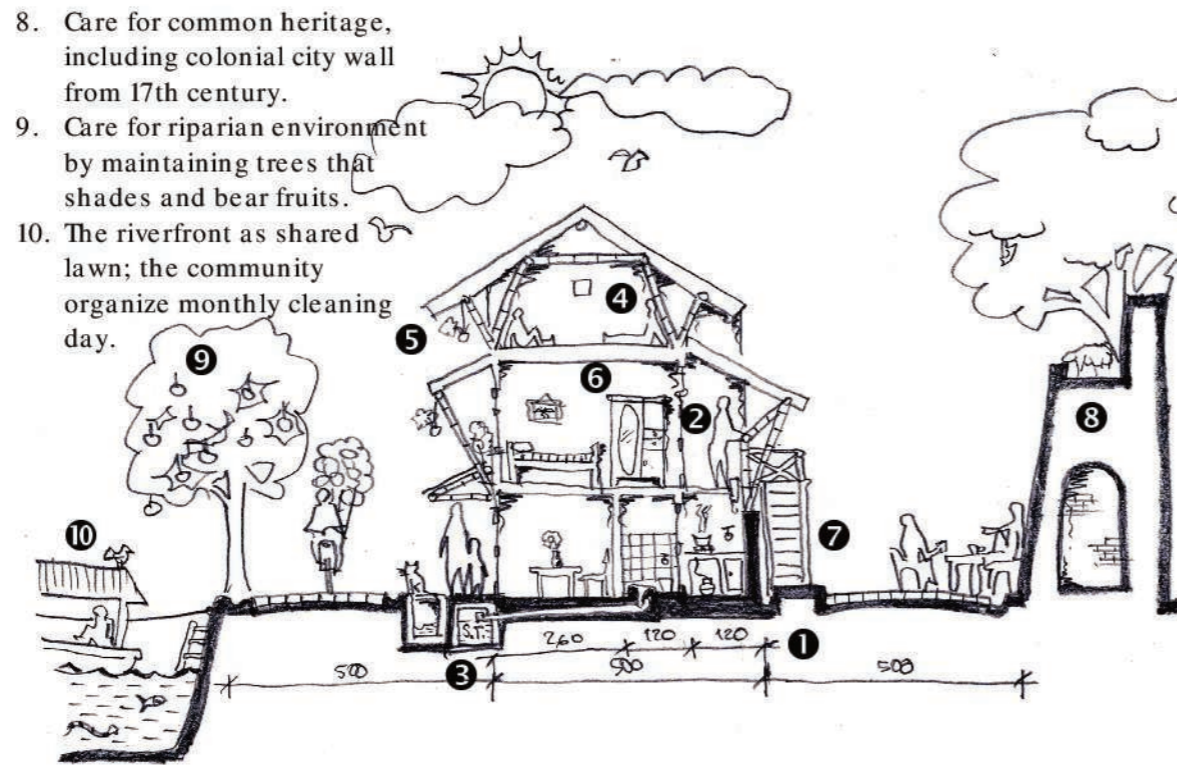 8. Care for common heritage,
including colonial city wall
from 17th century.
9. Care for riparian environment
by maintaining trees that
shades and bear fruits.
10. The riverfront as shared
lawn; the community
organize monthly cleaning
day.
4
5
9
6
2
8
10
7
S.T.
260 120 120
1
500
3
500
500